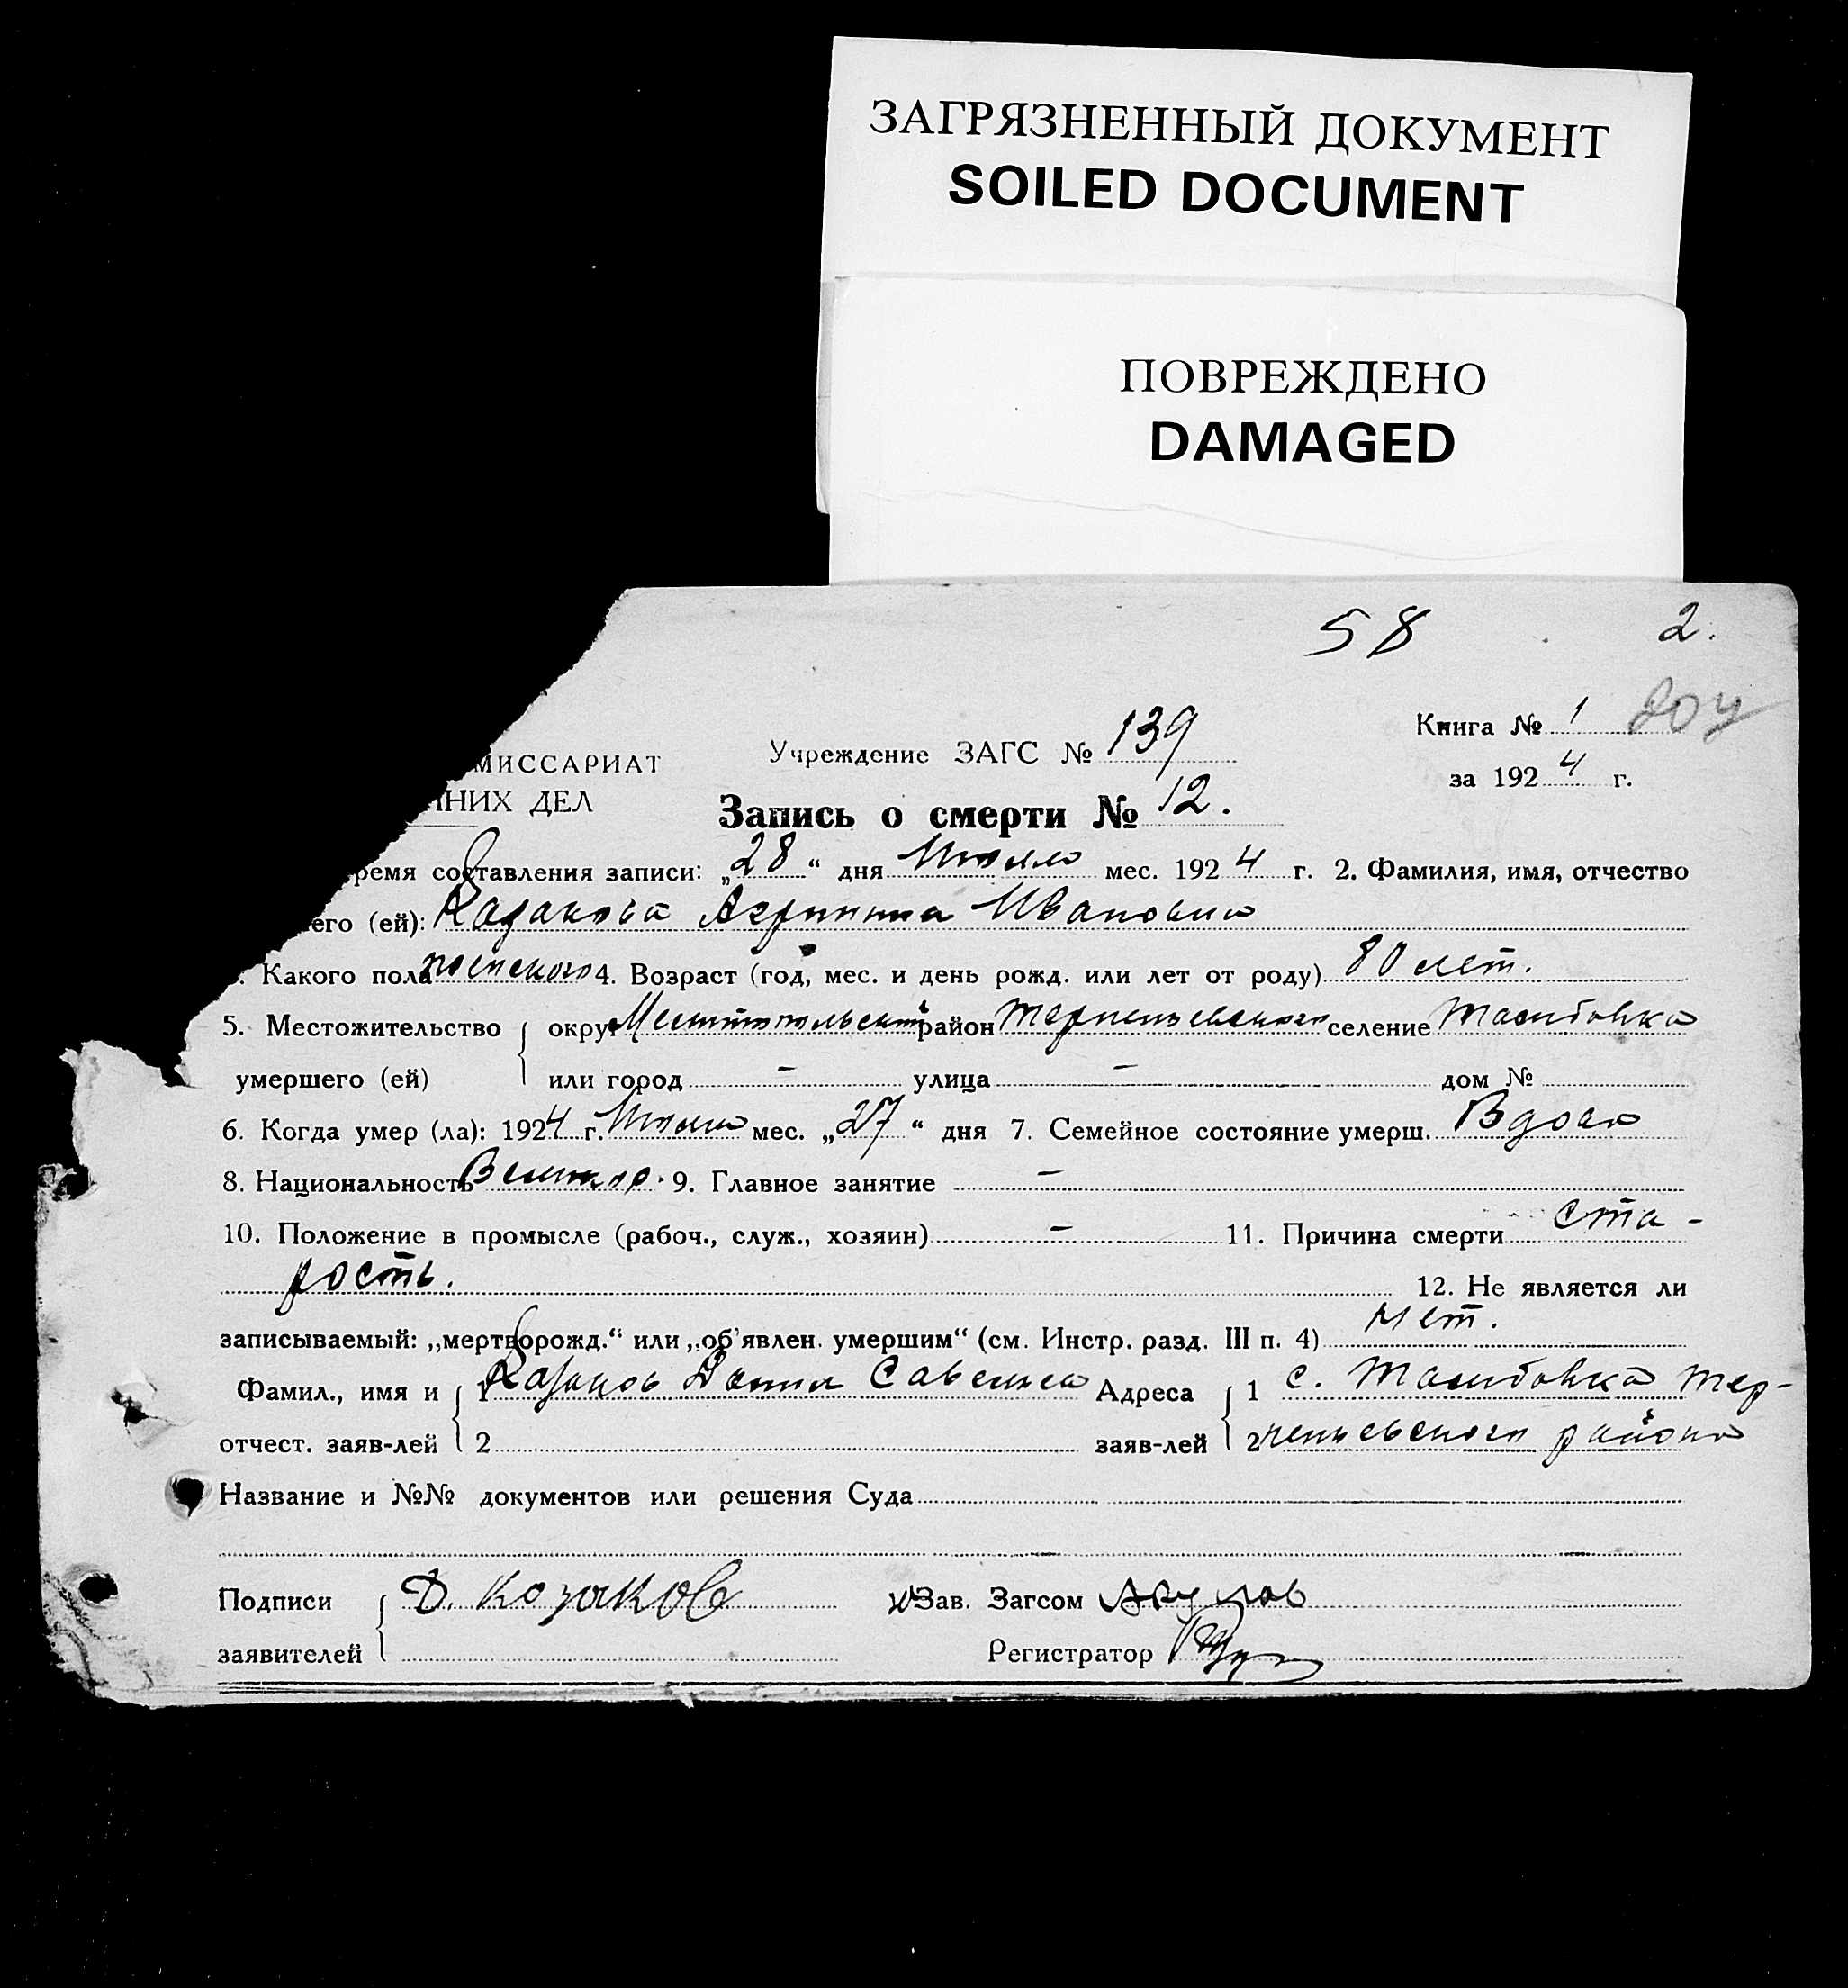 ЗАГРЯЗНЕННЫЙ ДОКУМЕНТ
SOILED DOCUMENT
ПОВРЕЖДЕНО
DAMAGED
58 2.
Книга № 1 204
МИССАРИАТ Учреждение ЗАГС № 139
за 1924 г.
ННИХ ДЕЛ
Запись о смерти № 12.
ремя составления записи: „28“ дня Июля мес. 1924 г. 2. Фамилия, имя, отчество
его (ей): Казакова Агрипина Ивановна
Какого пола женского 4. Возраст (год, мес. и день рожд. или лет от роду) 80 лет.
5. Местожительство округ район селение
умершего (ей) или город - улица - дом №
6. Когда умер (ла): 1924 г. Июля мес. „27“ дня 7. Семейное состояние умерш. Вдова
8. Национальность Великор. 9. Главное занятие -
10. Положение в промысле (рабоч., служ., хозяин) - 11. Причина смерти ста-
рость. 12. Не является ли
записываемый: „мертворожд.“ или „об'явлен. умершим“ (см. Инстр. разд. III п. 4) Нет.
Фамил., имя и 1 Казаков Данил Савельев Адреса 1 с. Тер-
отчест. заяв-лей 2 заяв-лей 2 района
Название и №№ документов или решения Суда
Подписи Д. Козаков Зав. Загсом
заявителей Регистратор